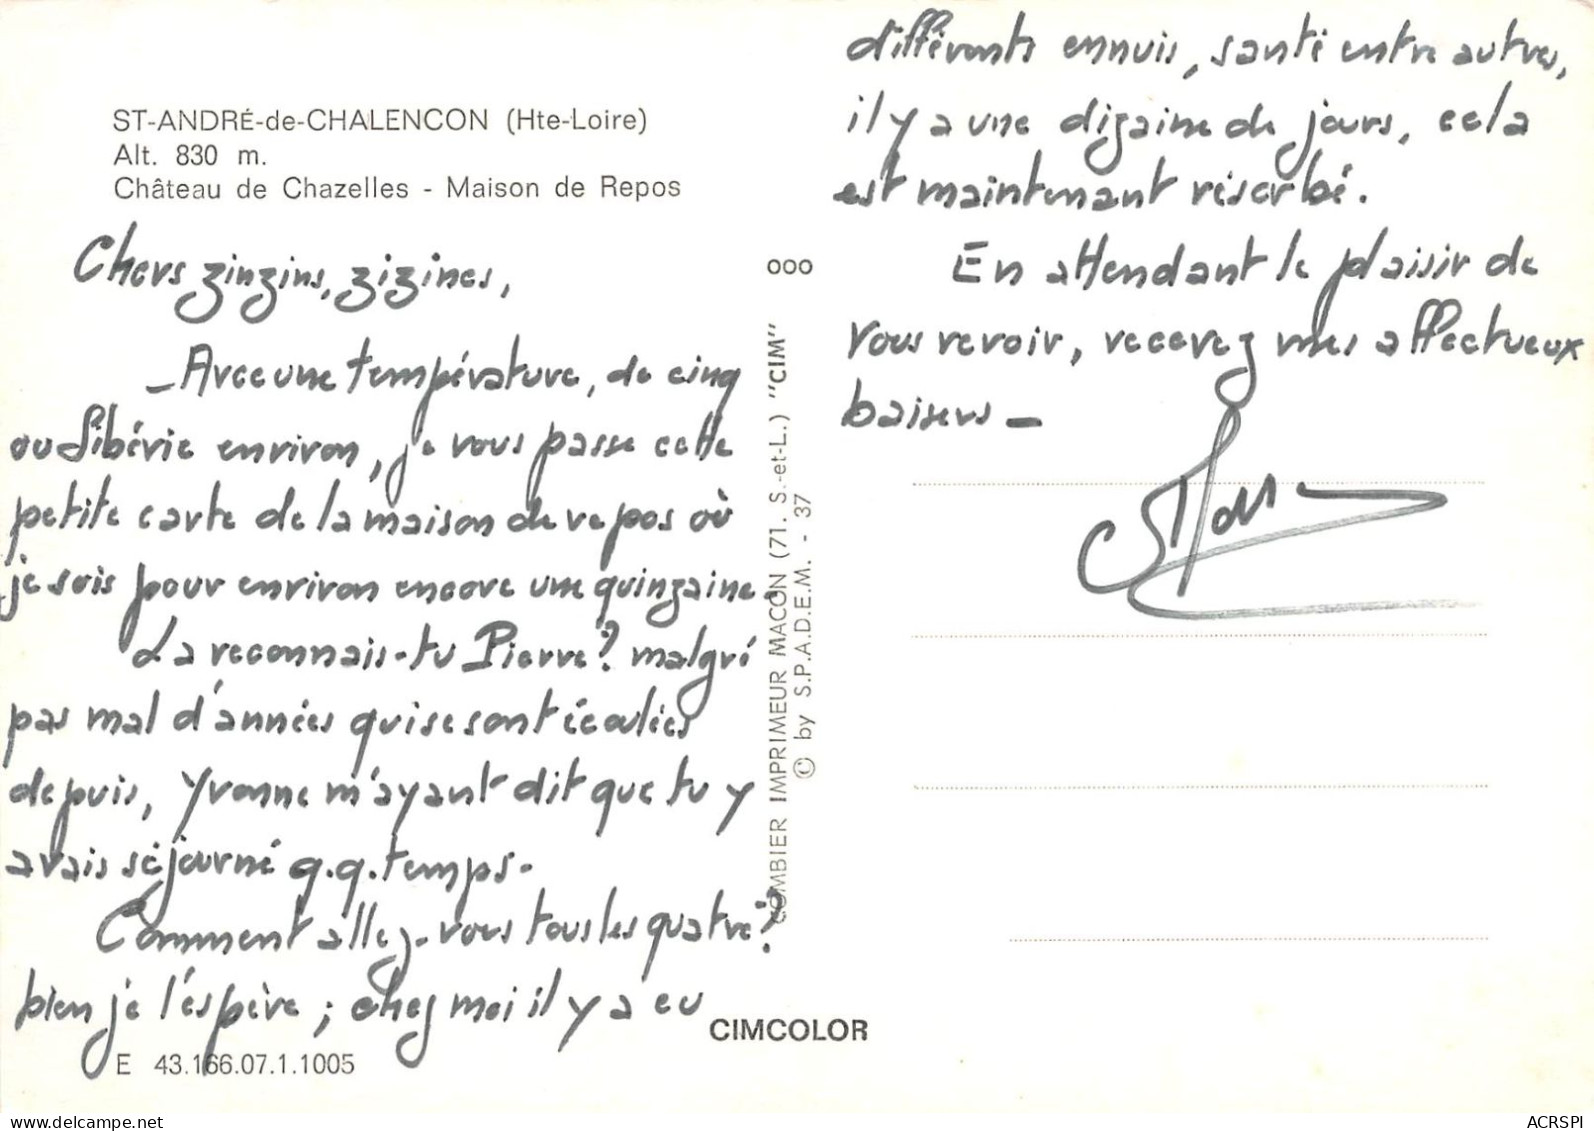 ST-ANDRÉ-de-CHALENCON (Hte-Loire)
Alt. 830 m.
Château de Chazelles - Maison de Repos
Chers zinzins, zizines,
- Avec une température, de cinq
ou Sibérie environ, je vous passe cette
petite carte de la maison de repos où
je suis pour environ encore une quinzaine.
La reconnais-tu Pierre? malgré
pas mal d'années qui se sont écoulées
depuis, Yvonne m'ayant dit que tu y
avais séjourné q.q. temps.
Comment allez-vous tous les quatre?
bien je l'espère ; chez moi il y a eu
E 43.166.07.1.1005
ooo
COMBIER IMPRIMEUR MACON (71. S.-et-L.) "CIM"
© by S.P.A.D.E.M. - 37
CIMCOLOR
différents ennuis, santé entre autres,
il y a une dizaine de jours, cela
est maintenant résorbé.
En attendant le plaisir de
vous revoir, recevez mes affectueux
baisers -
delcampe.net
ACRSPI